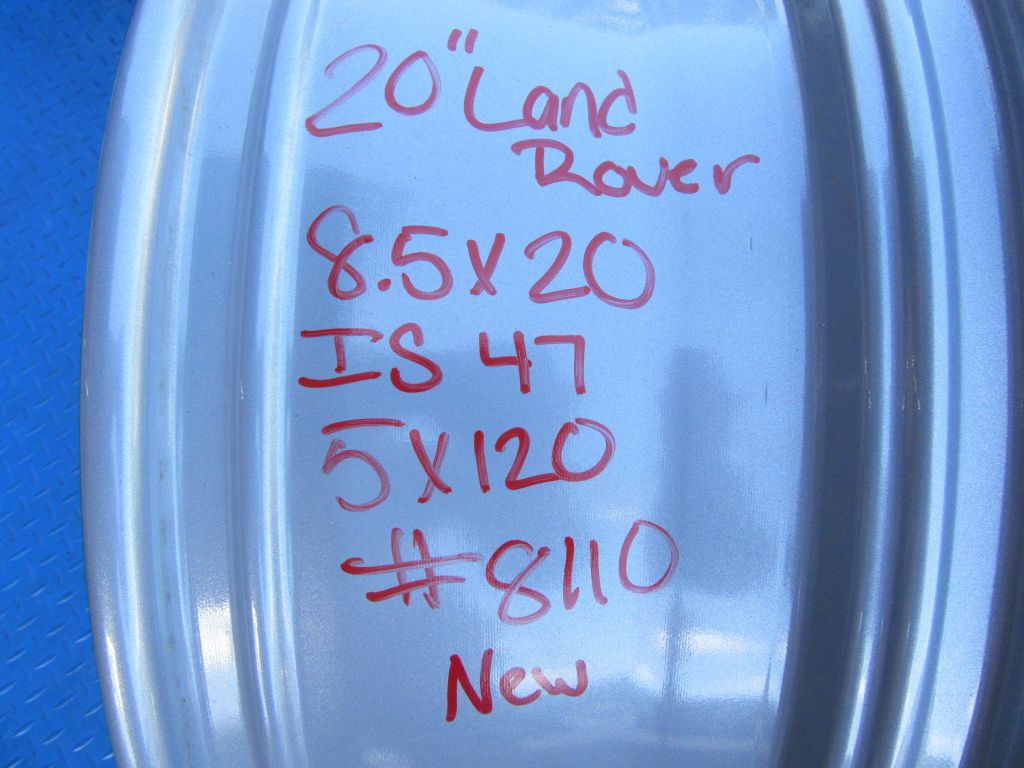 20" Land
Rover
8.5x20
IS 47
5x120
#8110
New